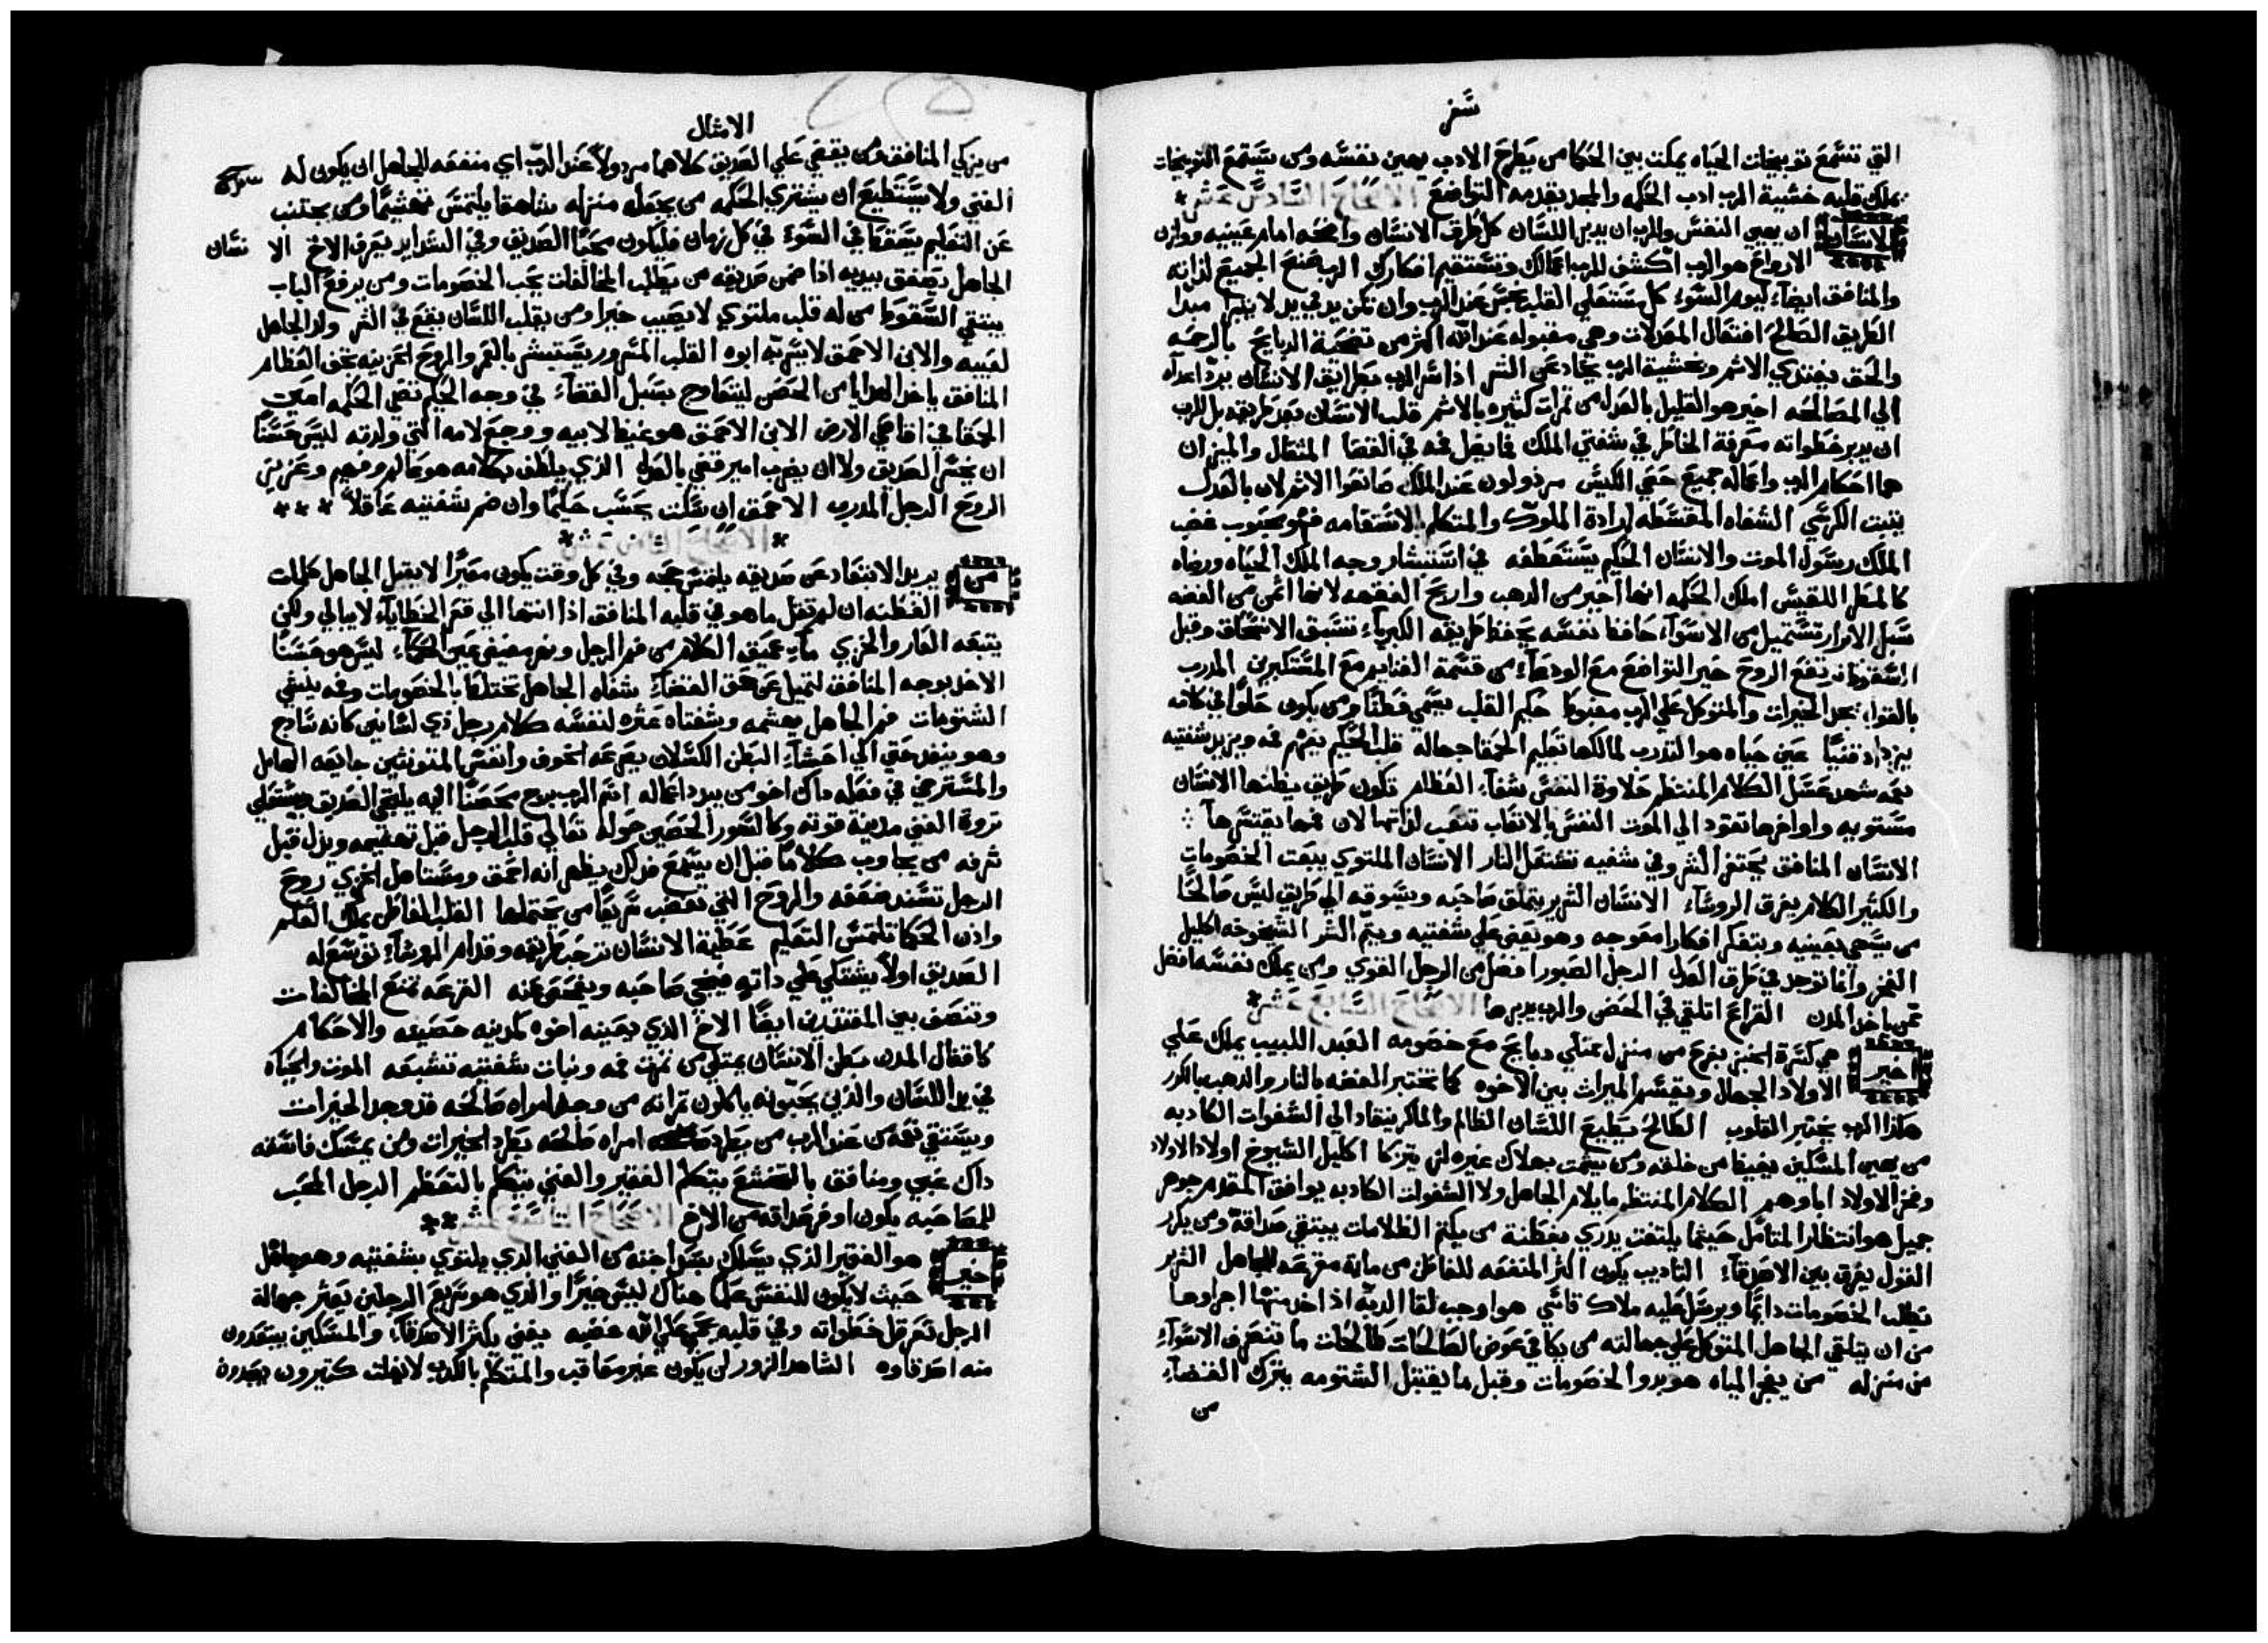 سفر
التي تسمع توبيخات الحياه يمكث بين الحكما من يطرح الادب يهين نفسه ومن يستمع التوبيخات
يملك قلبه خشية الرب ادب الحكمه والمجد يقدمه التواضع الاصحاح السادس عشر
الانسان ان يهيي النفس والرب ان يدبر اللسان كل طرق الانسان واضحه امام عينيه ووازن
الارواح هو الرب اكشف للرب اعمالك وتستقيم افكارك الرب صنع الجميع لذاته
والمنافق ايضاً ليوم السوء كل مستعلي القلب نجس عند الرب وان تكن يد في يد لا يتبرا مبدا
الطريق الصالح افتعال المعدلات وهي مقبوله عند الله اكثر من تضحية الدبايح بالرحمه
والحق يفتدي الاثم وبخشية الرب يحاد عن الشر اذا سر الرب بطرايق الانسان يرد اعداه
الي المصالحه اخير هو القليل بالعدل من ثمرات كثيره بالاثم قلب الانسان يعد طريقه بل للرب
ان يدبر خطواته معرفة الخاطر في شفتي الملك فما يضل فمه في القضا المثقال والميزان
هما احكام الرب واعماله جميع حصي الكيس مرذولون عند الملك صانعوا الاثم لان بالعدل
يثبت الكرسي الشفاه المقسطه ارادة الملوك والمتكلم الاستقامه فهو محبوب غضب
الملك رسول الموت والانسان الحكيم يستعطفه في استبشار وجه الملك الحياه ورضاه
كالمطر اللقيس املك الحكمه انها اخير من الدهب واربح الفهم لانها اثمن من الفضه
سبل الابرار تستميل من الاسواء حافظا نفسه يحفظ طريقه الكبرياء تسبق الانسحاق وقبل
السقوط ترتفع الروح خير التواضع مع الودعاء من قسمة الغنايم مع المستكبرين المدرب
بالقول يجد الخيرات والمتوكل علي الرب مغبوط حكيم القلب يسمي فطناً ومن يكون حلواً في كلامه
يزداد قنياً عين حياه هو التدرب لمالكها تعليم الحمقا جهاله قلب الحكيم يفهم فمه ويزيد شفتيه
نعمه شهد عسل الكلام المنتظم حلاوة النفس شفاء العظام تكون طريق يظنها الانسان
مستويه واواخرها تقود الي الموت النفس بالاتعاب تتعب لذاتها لان فمها يقسرها
الانسان المنافق يحتفر الشر وفي شفتيه تشتعل النار الانسان الملتوي يبعت الخصومات
والكتير الكلام يفرق الروساء الانسان الشرير يتملق صاحبه ويسوقه الي طريق ليس صالحاً
من يسجي بعينيه ويتفكر افكارا معوجه وهو يعض علي شفتيه ويتم الشر الشيخوخه اكليل
الفخر وانما توجد في طرق العدل الرجل الصبور افضل من الرجل القوي ومن يملك نفسه افضل
ممن ياخد المدن القراع اتلقي في الحضن والرب يدبرها الاصحاح السابع عشر
اخير هي كسرة الخبز بفرح من منزل ممتلي دبايح مع خصومه العبد اللبيب يملك علي
الاولاد الجهال ويقسم الميراث بين الاخوه كما تختبر الفضه بالنار والدهب بالكور
هكذا الرب يختبر القلوب الطالح يطيع اللسان الظالم والماكر ينقاد الي الشفوات الكادبه
من يهين المسكين يغيظ من خلقه ومن يشمت بهلاك غيره لن يتزكا اكليل الشيوخ اولاد الاولاد
وفخر الاولاد اباوهم الكلام المنتظم ما يلايم الجاهل ولا الشفوات الكادبه يوافق المقدم جوهر
جميل هو انتظار المتامل حيثما يلتفت يدري بفطنة من يكتم الظلامات يبتغي صداقة ومن يكرر
القول يفرق بين الاصدقاء التاديب يكون اكثر المنفعه للفاطن من ماية مقرعه للجاهل الشرير
يطلب الخصومات دايماً ويرسل عليه ملاك قاسي هو اوجب لقا الدبه اذا اخد منها اجراوها
من ان يتلقي الجاهل المتوكل علي جهالته من يكافي عوض الصالحات طالحات ما تنصرف الاسواء
من منزله من يفجر المياه هو بدو الخصومات وقبل ما يقتبل الشتومه يترك القضاء
من
الامثال
من يزكي المنافق ومن يقضي علي الصديق كلاهما مردولاً عند الرب اي منفعه للجاهل ان يكون له
الغني ولا يستطيع ان يشتري الحكمه من يجعله منزله شاهقا يلتمس تهشيماً ومن يجتنب
عن التعليم يسقط في السوء في كل زمان فليكون محباً الصديق وفي الشدايد يعرف الاخ الا نسان
الجاهل يصفق بيديه اذا ضمن صديقه من يطلب المخالفات يحب الخصومات ومن يرفع الباب
يبتغي السقوط من له قلب ملتوي لا يصيب خيرا ومن يقلب اللسان يقع في الشر ولد الجاهل
لعيبه والابن الاحمق لا يسر به ابوه القلب المسرور يستبشر بالعمر والروح الحزينه تجفف العظام
المنافق ياخد الهدايا من الحضن ليتعاوج بسبل القضاء في وجه الحكيم تضي الحكمه اعين
الحمقا في اقاصي الارض الابن الاحمق هو غيظ لابيه ووجع لامه التي ولدته ليس حسناً
ان يخسر الصديق ولا ان يضرب امير قضي بالعدل الذي يلطف بكلامه هو عالم وفهيم وعزيز
الروح الرجل المدرب الاحمق ان سكت يحسب حكيماً وان ضم شفتيه عاقلاً
من يريد الابتعاد عن صديقه يلتمس حجه وفي كل وقت يكون معيراً لا يقبل الجاهل كلمات
الفطنه ان لم تقل ما هو في قلبه المنافق اذا انتها الي قعر الخطايا لا يبالي ولكن
يتبعه العار والخزي ماء عميق الكلام من فم الرجل ونهر مفيض عين الحكماء ليس هو حسناً
الاخد بوجه المنافق لتميل عن حق القضاء شفاه الجاهل تختلط بالخصومات وفمه يبتغي
الشتومات فم الجاهل يهشمه وشفتاه عثره لنفسه كلام رجل ذي لسانين كانه سادج
وهو ينفد حتي الي احشاء البطن الكسلان يصرعه الخوف وانفس المتونثين جايعه العامل
والمسترخي في فعله داك اخو من يبدد اعماله اسم الرب برج محصناً اليه يلتجي الصديق ويستعلي
ثروة الغني مدينة قوته وكالسور الحصين حوله تعالي قلب الرجل قبل تهشيمه ويذل قبل
شرفه من يجاوب كلاماً قبل ان يسمع فدلك يظهر انه احمق ومستاهل الخزي روح
الرجل تسند ضعفه والروح التي تغضب سريعاً من يحتملها القلب الفاطن يملك العلم
واذن الحكما تلتمس التعليم عطية الانسان ترحب طريقه وقدام الروساء توسع له
الصديق اولاً يشتكي علي داته فيجي صاحبه ويفحص عنه القرعه تمنع المخالفات
وتنصف بين المقتدرين ايضاً الاخ الذي يعينه اخوه كمدينه حصينه والاحكام
كاقفال المدن بطن الانسان يمتلي من ثمرت فمه ونبات شفتيه تشبعه الموت والحياه
في يد اللسان والذين يحبونه ياكلون ثمراته من وجد امراه صالحه قد وجد الخيرات
ويستقي نعمه من عند الرب من يطرد امراه صالحه يطرد الخيرات ومن يمسك فاسقه
داك غبي ومنافق بالتخشع يتكلم الفقير والغني يتكلم بالتعظم الرجل المحب
للمصاحبه يكون اوفر صداقه من الاخ الاصحاح التاسع عشر
خير هو الفقير الذي يسلك بسذاجته من الغني الذي يلتوي بشفتيه وهو جاهل
حيث لا يكون للنفس علماً هناك ليس خيراً والذي هو سريع الرجلين يعثر جهالة
الرجل تعرقل خطواته وفي قلبه يحمي علي الله غضبه يغني يكثر الاصدقاء والمسكين يبتعدون
منه اصدقاوه الشاهد الزور لن يكون غير معاقب والمتكلم بالكدب لا يفلت كتيرون يعبدون